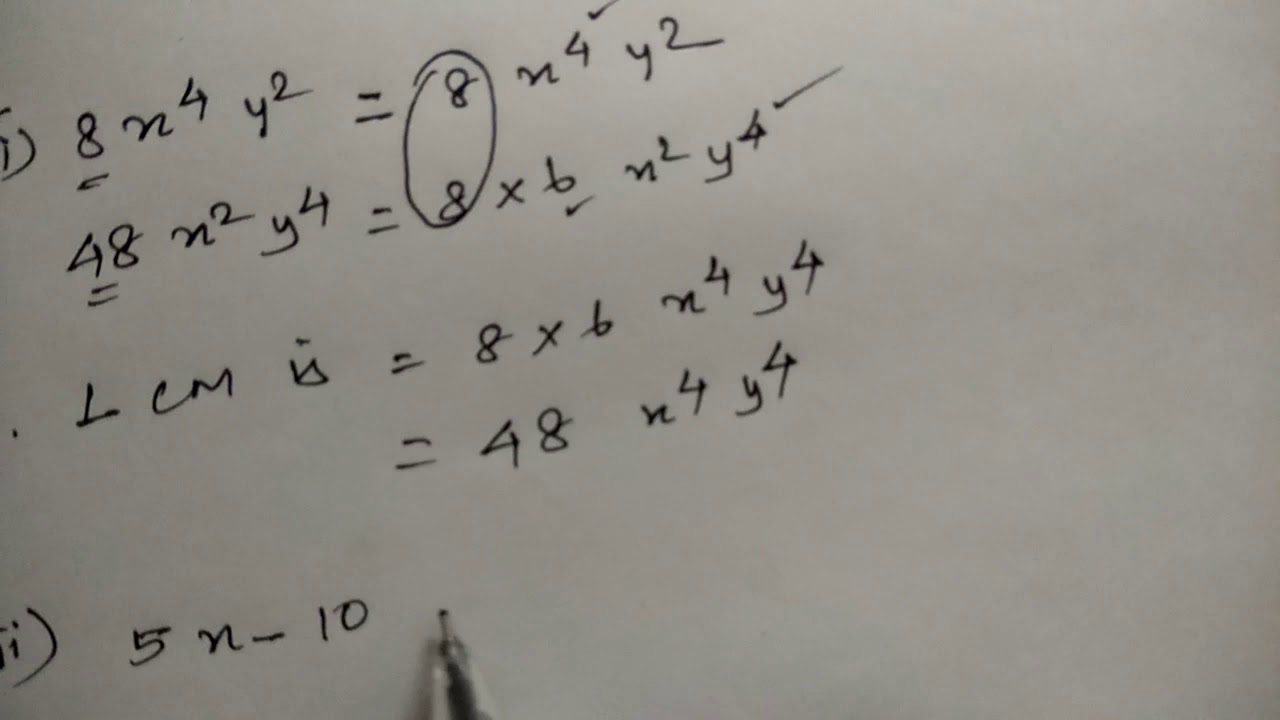 i) 8x⁴y² = 8 x⁴ y²
48x²y⁴ = 8 × 6 x² y⁴
. LCM is = 8 × 6 x⁴ y⁴
= 48 x⁴ y⁴
ii) 5x - 10